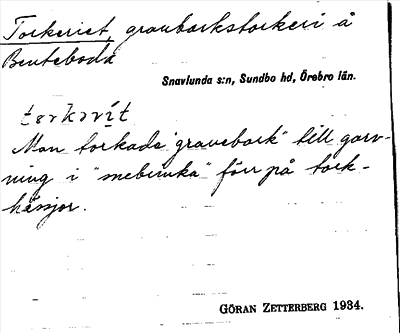 Torkeriet, granbarkstorkeri å
Benteboda
Snavlunda s:n, Sundbo hd, Örebro län.
tərkərít
Man torkade "granebark" till garv-
ning i "mebinka" förr på tork-
hässjor.
GÖRAN ZETTERBERG 1934.